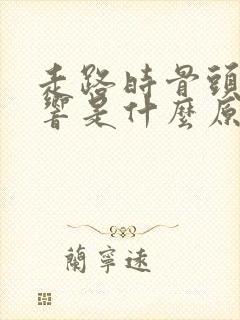 走路時骨頭
響是什麼原
蘭寧遠